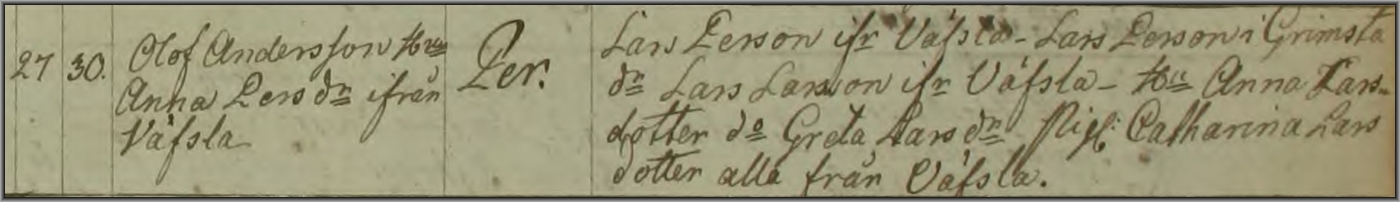 27 30. Olof Andersson Hu
Anna Persdr ifrån
Väfsla
Per.
Lars Person ifr Väfsla - Lars Person i Grimsta
dr Lars Larson ifr Väfsla - Hu Anna Lars-
dotter do Greta Larsdr Pig: Catharina Lars
dotter alla från Väfsla.